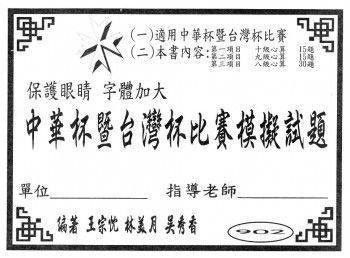 (一)適用中華杯暨台灣杯比賽
(二)本書內容:第一項目 十級心算 15題
第二項目 九級心算 15題
第三項目 八級心算 30題
保護眼睛 字體加大
中華杯暨台灣杯比賽模擬試題
單位 指導老師
編著 王宗忱 林美月 吳秀香
902